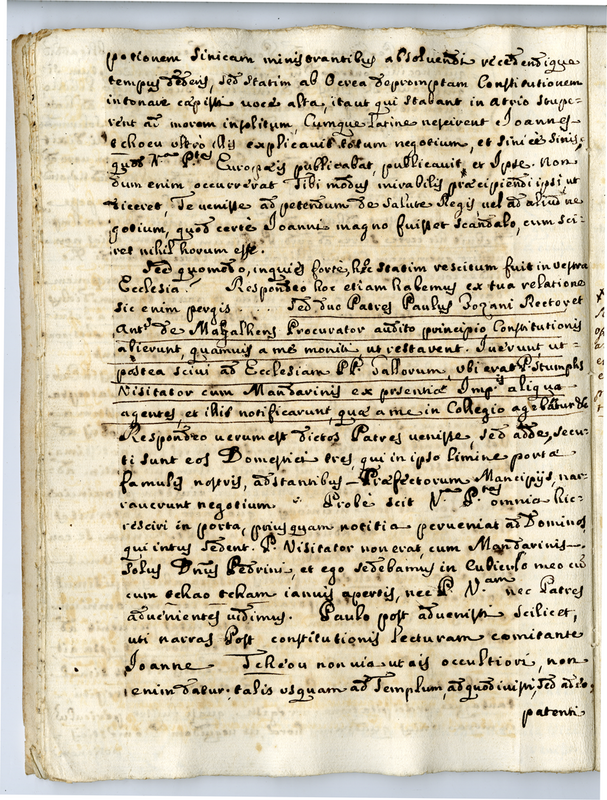 potionem Sinicam ministrantibus absolvendi recedendique
tempus dederis, sed statim ab Ocrea depromptam Constitutionem
intonare cæpisti voce alta, ita ut qui stabant in atrio stupe-
rent ad morem insolitum, Cumque Latine nescirent Joannes
tcheou ultro illis explicavit totum negotium, et Sinice Sinis,
quod Vra Ptas Europæis publicabat, publicavit et Ipse. Non
dum enim occurrerat Tibi modus mirabilis præcipiendi ipsi ut
diceret, Te venisse ad petendum de salute Regis vel ad aliud ne
gotium, quod certe Joanni magno fuisset scandalo, cum sci-
ret nihil horum esse.
Sed quomodo, inquies forte, hoc statim rescitum fuit in vestra
Ecclesia? Respondeo hoc etiam habemus ex tua relatione
sic enim pergis . . . Sed duo Patres Paulus Bozani Rector et
Ants de Magalhens Procurator audito principio Constitutionis
abierunt, quamvis a me moniti ut restarent. Iverunt, ut
postea scivi ad Ecclesiam PP. Gallorum ubi erat P. Stumphs
Visitator cum Mandarinis ex præsentia Imps aliqua
agentes, et ibi notificarunt, quæ a me in Collegio agebantur &c
Respondeo verum est dictos Patres venisse, sed adde, secu-
ti sunt eos Domestici tres, qui in ipso limine portæ
famulis nostris, adstantibus Præfectorum Mancipijs, nar-
raverunt negotium. Probe scit Vra Ptas omnia hic
resciri in porta, priusquam notitia perveniat ad Dominos
qui intus sedent. P. Visitator non erat cum Mandarinis
Solus Dnus Pedrini, et ego sedebamus in Cubiculo meo
cum tchao tcham ianuis apertis, nec P. Vam nec Patres
advenientes vidimus. Paulo post advenisti scilicet,
uti narras Post constitutionis lecturam comitante
Joanne Tcheou non via ut ais occultiori, non
enim datur talis usquam ad Templum, ad quod ivisti, sed
patenti